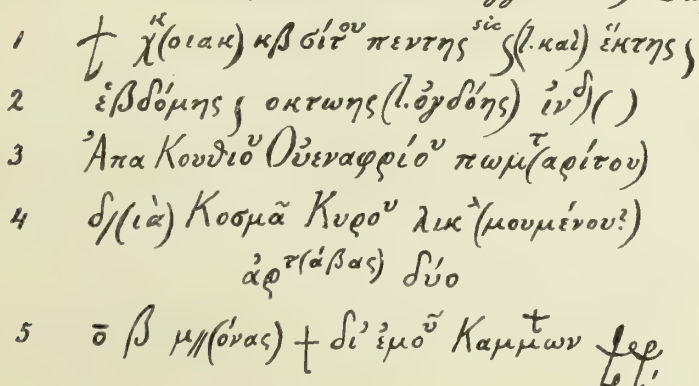 1 ϯ χ^κ(οιακ) κβ σίτου πεντης^sic ϛ(l. καὶ) ἕκτης ϛ
2 ἑβδόμης ϛ οκτωης(l. ὀγδόης) ἰνδ( )
3 Ἀπα Κουθιοῦ Οὐεναφρίου πωμ^τ(αρίτου)
4 δ//(ιὰ) Κοσμᾶ Κυροῦ λικ^λ(μουμένου?)
ἀρτ(άβας) δύο
5 ο̄ β μ//(όνας) + δι' ἐμοῦ Καμμ^των